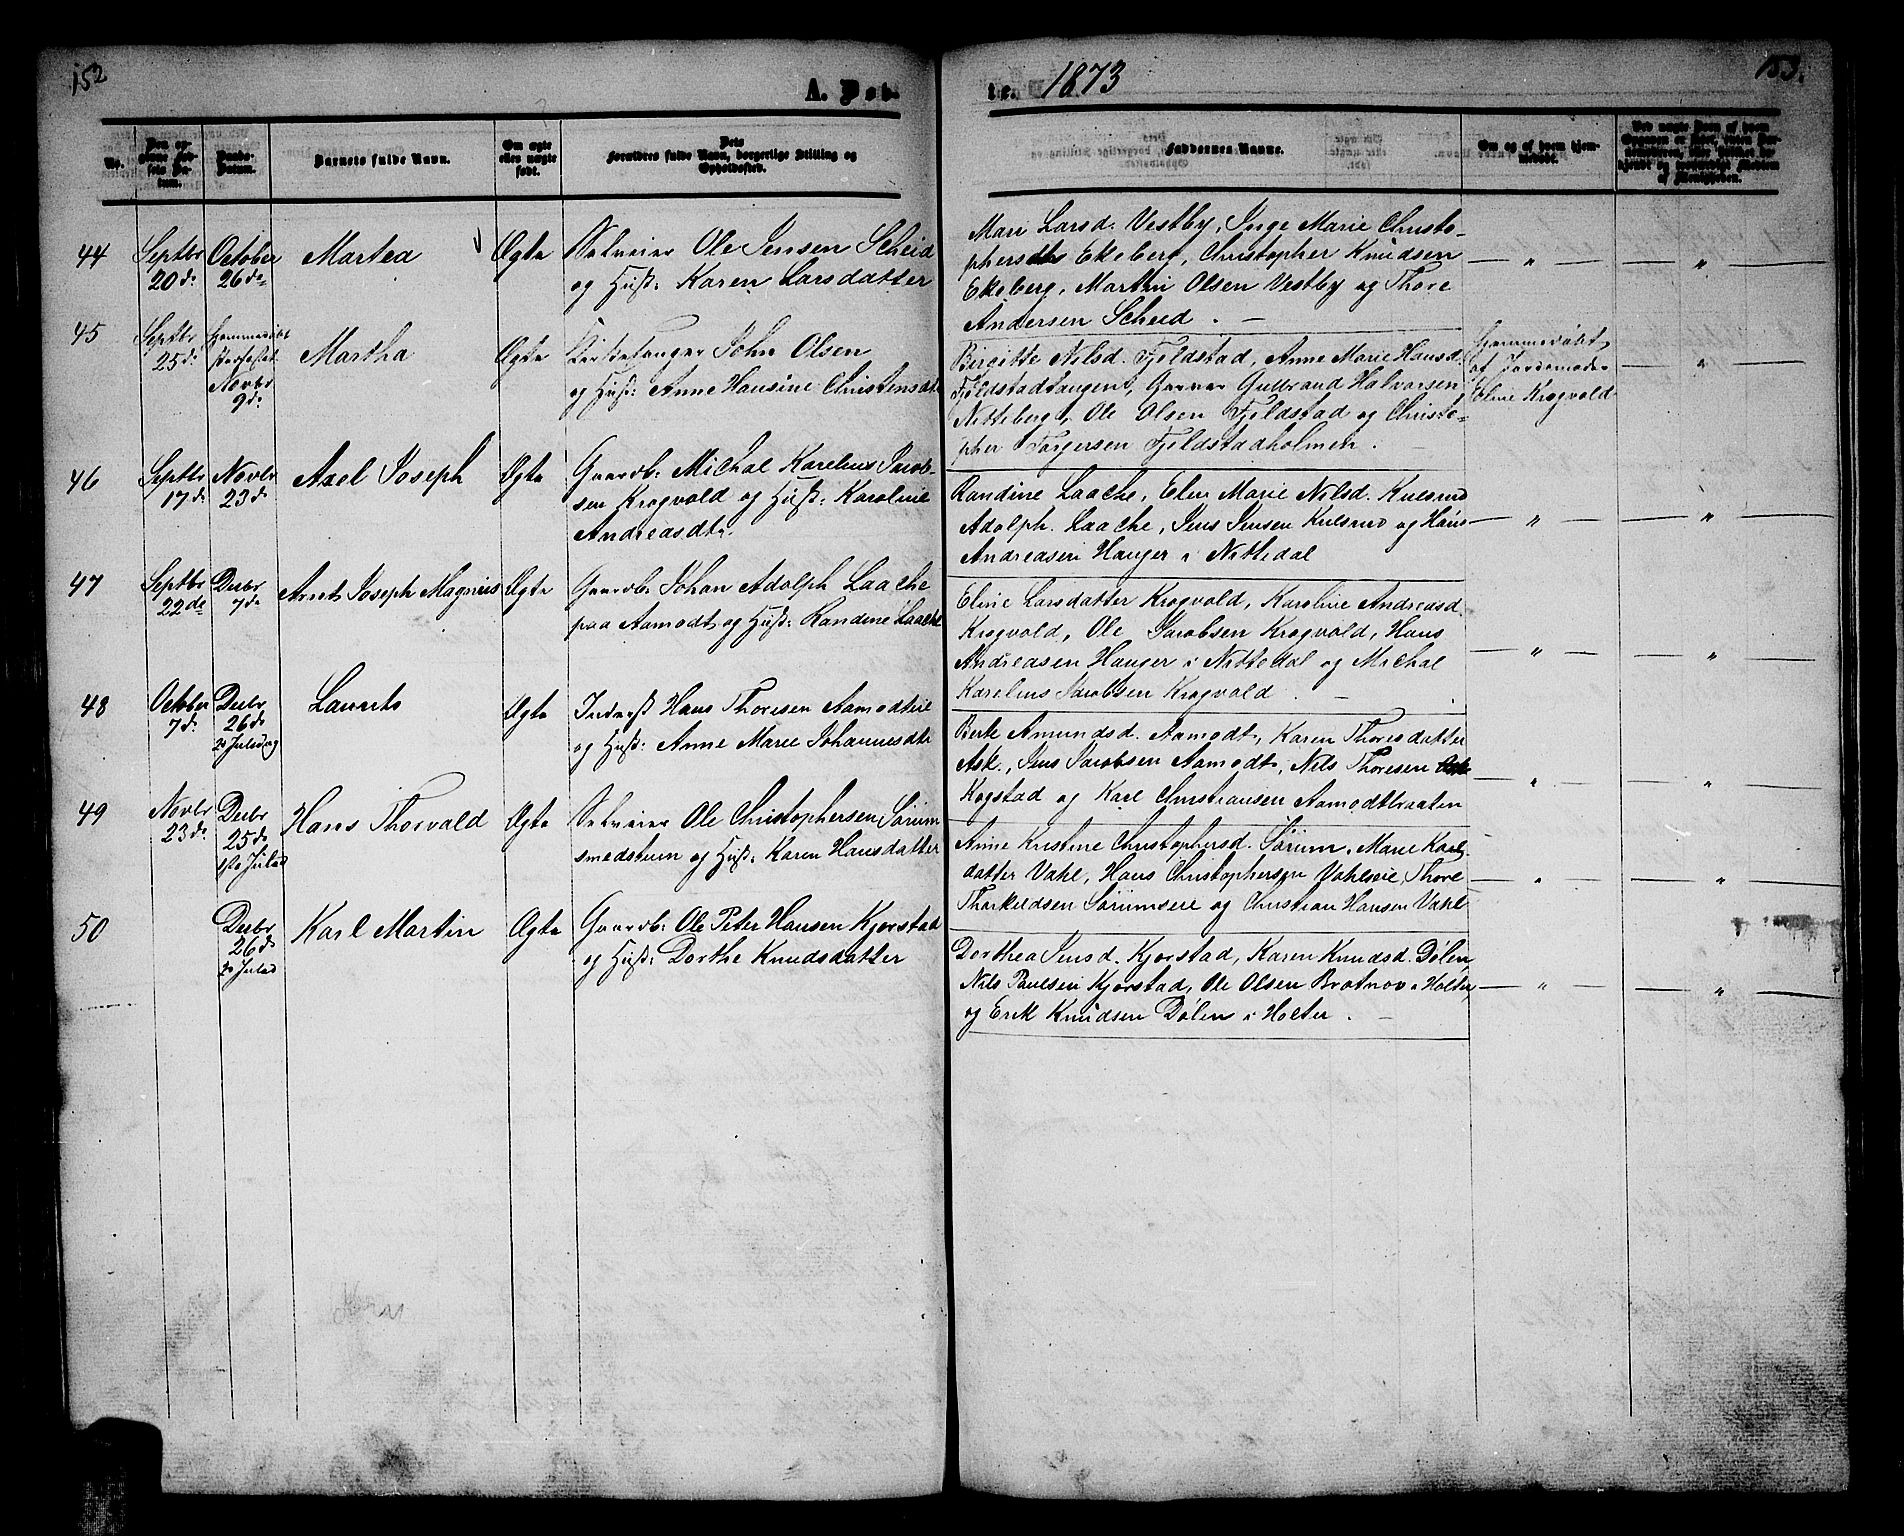 152
A. Døb-
te. 1873
153.
No.
Barnets fulde Navn.
Om ægte
eller uægte
født.
Forældres fulde Navn, borgerlige Stilling og
Opholdssted.
Faddernes Navne.
Om og af hvem hjem-
medøbt.
44
Septbr
20de
October
26de
Martea
Ægte
Selveier Ole Jensen Scheid
og Hust: Karen Larsdatter
Mari Larsd. Vestby, Inge Marie Christo-
phersdtr Ekeberg, Christopher Knudsen
Ekeberg, Martin Olsen Vestby og Thore
Andersen Scheid. —
— " —
— " —
45
Septbr
25de
Hjemmedøbt
Novbr
9de
Martha
Ægte
Kirkesanger John Olsen
og Hust: Anne Hansine Christensdtr
Birgitte Nilsd. Fjeldstad, Anne Marie Hansd.
Fjeldstadtangen, Garver Gulbrand Halvorsen
Nitteberg, Ole Olsen Fjeldstad og Christo-
pher Torgersen Fjeldstadholmen.
Hjemmedøbt
af Jordemoder
Eline Krogvold
— " —
46
Septbr
17de
Novbr
23de
Axel Joseph
Ægte
Gaardb: Michal Karelius Jacob-
sen Krogvold og Hust: Karoline
Andreasdtr.
Randine Laache, Elen Marie Nilsd. Kulsrud
Adolph Laache, Jens Jensen Kulsrud og Hans
Andreasen Hauger i Nittedal
— " —
— " —
47
Septbr
22de
Decbr
7de
Arnt Joseph Magnus
Ægte
Gaardb: Johan Adolph Laache
paa Aamodt og Hust: Randine Laache
Eline Larsdatter Krogvold, Karoline Andreasd.
Krogvold, Ole Jacobsen Krogvold, Hans
Andreasen Hauger i Nittedal og Michal
Karelius Jacobsen Krogvold. —
— " —
— " —
48
October
7de
Decbr
26de
2n Juledag
Laurits
Ægte
Inderst Hans Thoresen Aamodteie
og Hust: Anne Marie Johannesdtr
Berte Amundsd. Aamodt, Karen Thoresdatter
Ask, Jens Jacobsen Aamodt, Nils Thoresen
Kogstad og Karl Christiansen Aamodtbraaten
— " —
— " —
49
Novbr
23de
Decbr
25de
1ste Juled
Hans Thorvald
Ægte
Selveier Ole Christophersen Sørum
smedstuen og Hust: Karen Hansdatter
Anne Kristine Christophersd. Sørum, Marie Karls-
datter Vahl, Hans Christophersen Vahlseie, Thore
Thorkildsen Sørumseie og Christian Hansen Vahl
— " —
— " —
50
Decbr
26de
2n Juled
Karl Martin
Ægte
Gaardb: Ole Peter Hansen Kjørstad
og Hust: Dorthe Knudsdatter
Dorthea Jensd. Kjørstad, Karen Knudsd. Dølen,
Nils Paulsen Kjørstad, Ole Olsen Bratnov i Holter,
og Erik Knudsen Dølen i Holter. —
— " —
— " —